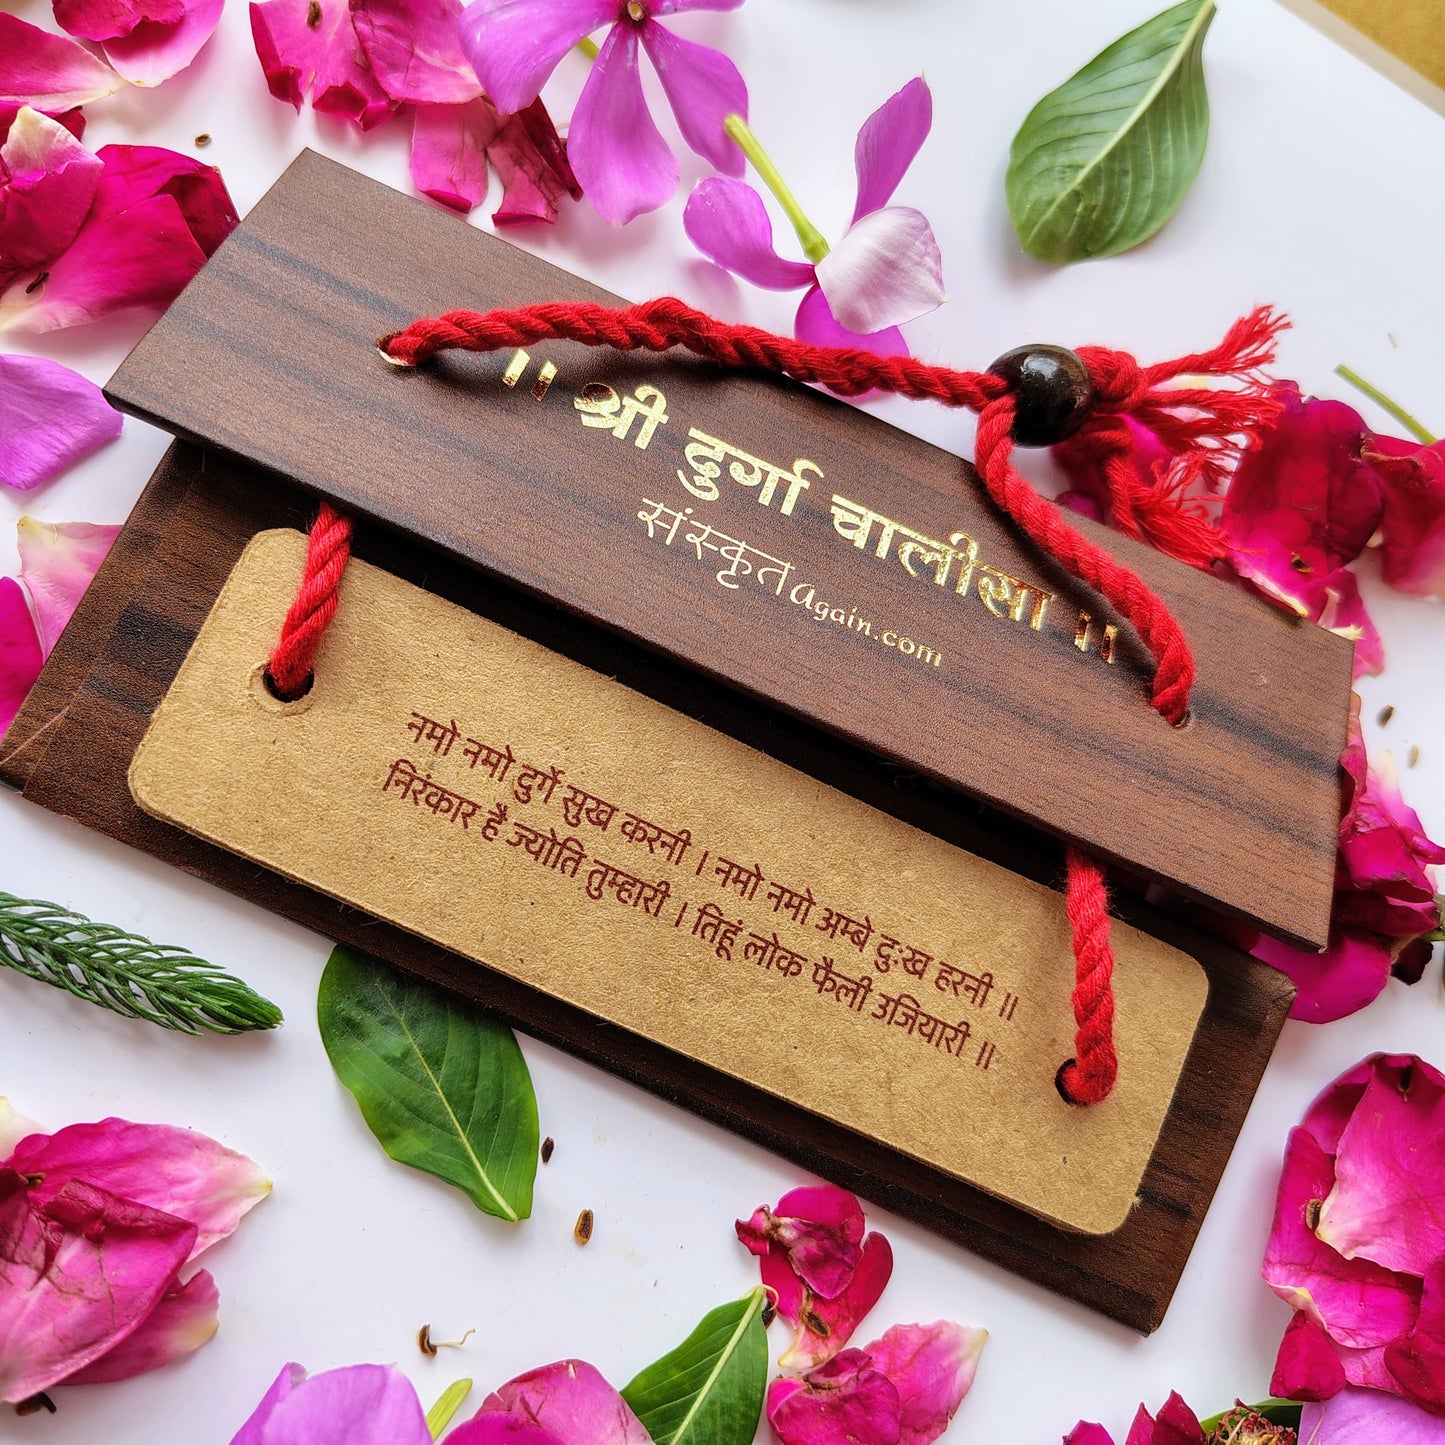 ।। श्री दुर्गा चालीसा ।।
संस्कृतAgain.com
नमो नमो दुर्गे सुख करनी । नमो नमो अम्बे दुःख हरनी ॥
निरंकार है ज्योति तुम्हारी । तिहूं लोक फैली उजियारी ॥